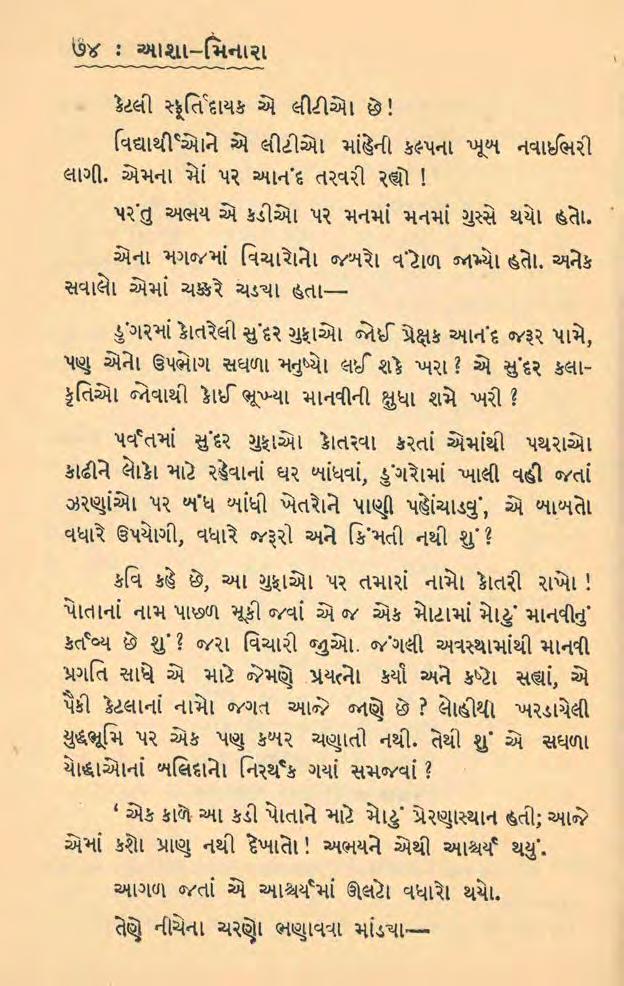 ૭૪ : આશા–મિનારા
કેટલી સ્ફૂર્તિદાયક એ લીટીઓ છે!
વિદ્યાર્થીઓને એ લીટીઓ માંહેની કલ્પના ખૂબ નવાઈભરી
લાગી. એમના મોં પર આનંદ તરવરી રહ્યો !
પરંતુ અભય એ કડીઓ પર મનમાં મનમાં ગુસ્સે થયો હતો.
એના મગજમાં વિચારોનો જબરો વંટોળ જામ્યો હતો. અનેક
સવાલો એમાં ચક્કરે ચડચા હતા—
ડુંગરમાં કોતરેલી સુંદર ગુફાઓ જોઈ પ્રેક્ષક આનંદ જરૂર પામે,
પણ એનો ઉપભોગ સઘળા મનુષ્યો લઈ શકે ખરા? એ સુંદર કલા-
કૃતિઓ જોવાથી કોઈ ભૂખ્યા માનવીની ક્ષુધા શમે ખરી ?
પર્વતમાં સુંદર ગુફાઓ કોતરવા કરતાં એમાંથી પથરાઓ
કાઢીને લોકો માટે રહેવાનાં ઘર બાંધવાં, ડુંગરોમાં ખાલી વહી જતાં
ઝરણાંઓ પર બંધ બાંધી ખેતરોને પાણી પહોંચાડવું, એ બાબતો
વધારે ઉપયોગી, વધારે જરૂરી અને કિંમતી નથી શું ?
કવિ કહે છે, આ ગુફાઓ પર તમારાં નામો કોતરી રાખો !
પોતાનાં નામ પાછળ મૂકી જવાં એ જ એક મોટામાં મોટું માનવીનું
કર્તવ્ય છે શું ? જરા વિચારી જુઓ. જંગલી અવસ્થામાંથી માનવી
પ્રગતિ સાધે એ માટે જેમણે પ્રયત્નો કર્યાં અને કષ્ટો સહ્યાં, એ
પૈકી કેટલાનાં નામો જગત આજે જાણે છે ? લોહીથી ખરડાયેલી
યુદ્ધભૂમિ પર એક પણ કબર ચણાતી નથી. તેથી શું એ સઘળા
યોદ્ધાઓનાં બલિદાનો નિરર્થક ગયાં સમજવાં ?
‘ એક કાળે આ કડી પોતાને માટે મોટું પ્રેરણાસ્થાન હતી; આજે
એમાં કશો પ્રાણ નથી દેખાતો ! અભયને એથી આશ્ચર્ય થયું.
આગળ જતાં એ આશ્ચર્યમાં ઊલટો વધારો થયો.
તેણે નીચેના ચરણો ભણાવવા માંડચા—